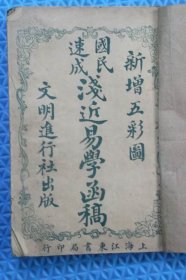 新增五彩圖
國民
速成
淺近易學函稿
文明進行社出版
上海江東書局印行